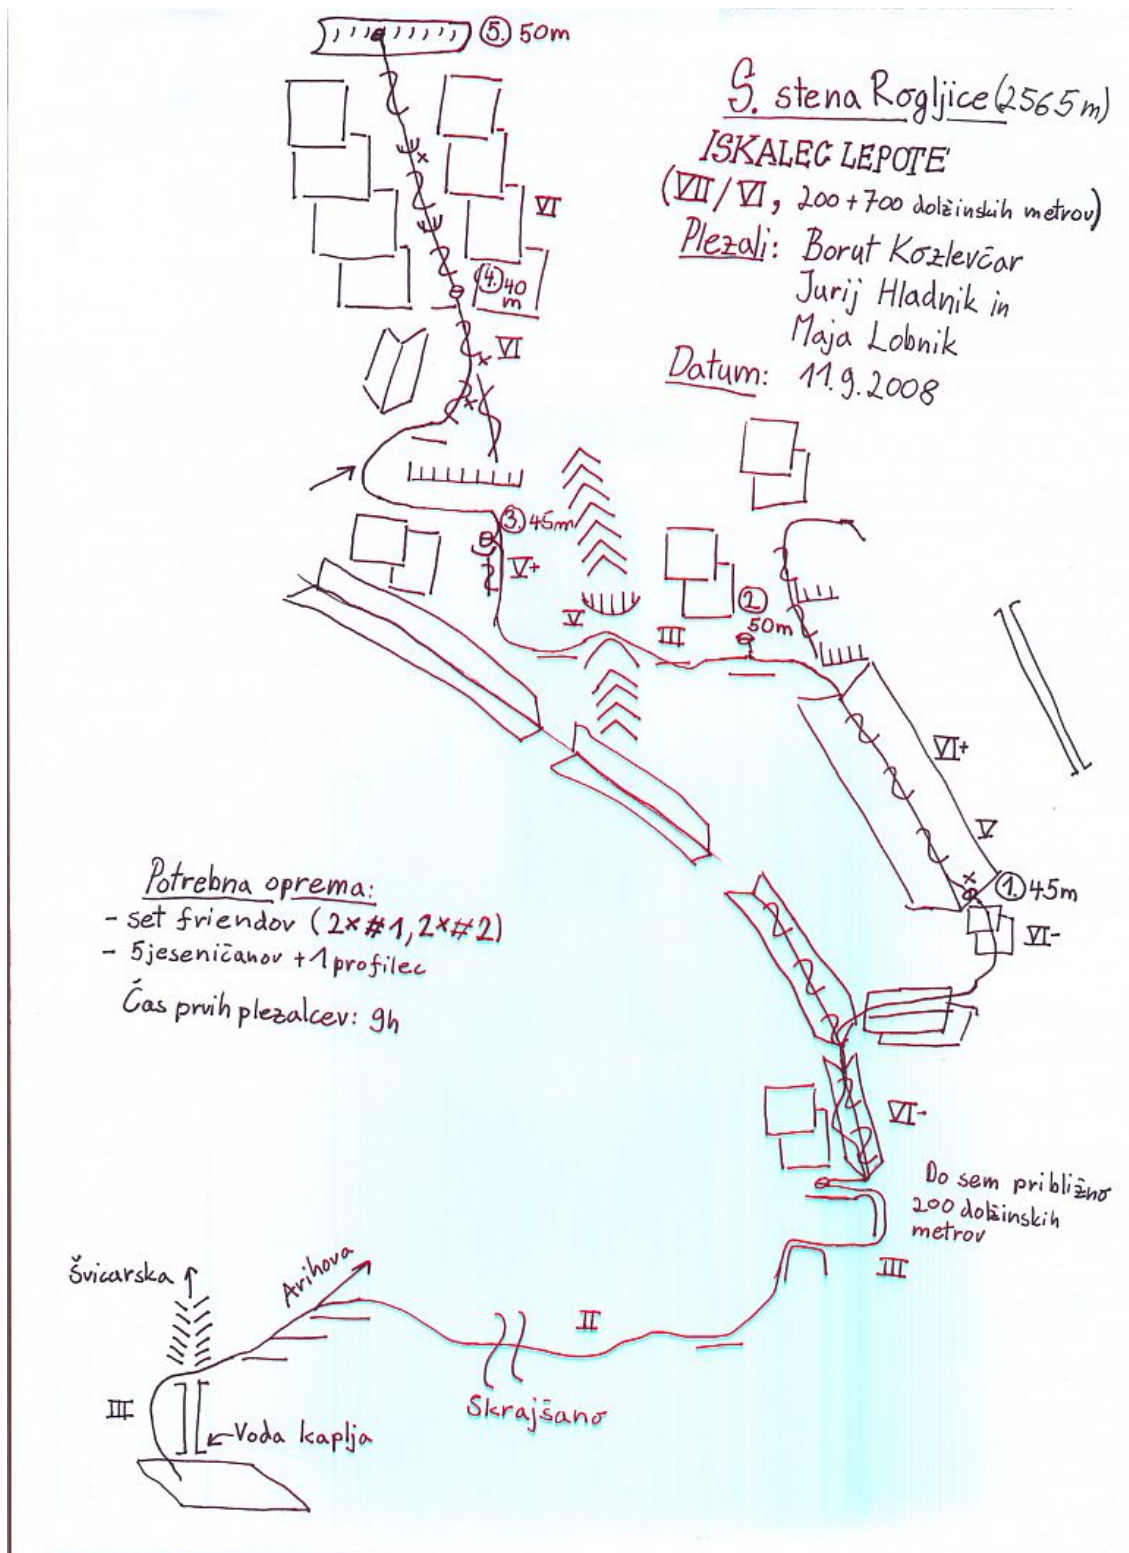 5. 50m
S. stena Rogljice (2565 m)
ISKALEC LEPOTE
(VII/VI, 200+700 dolžinskih metrov)
Plezali: Borut Kozlevčar
Jurij Hladnik in
Maja Lobnik
Datum: 11.9.2008
VI
4. 40
m
VI
3. 45m
V+
V
III
2
50m
VI+
V
1. 45m
VI-
Potrebna oprema:
- set friendov (2x#1, 2x#2)
- 5 jeseničanov + 1 profilec
Čas prvih plezalcev: 9h
VI-
Do sem približno
200 dolžinskih
metrov
III
Švicarska
Arihova
II
Skrajšano
III
Voda kaplja